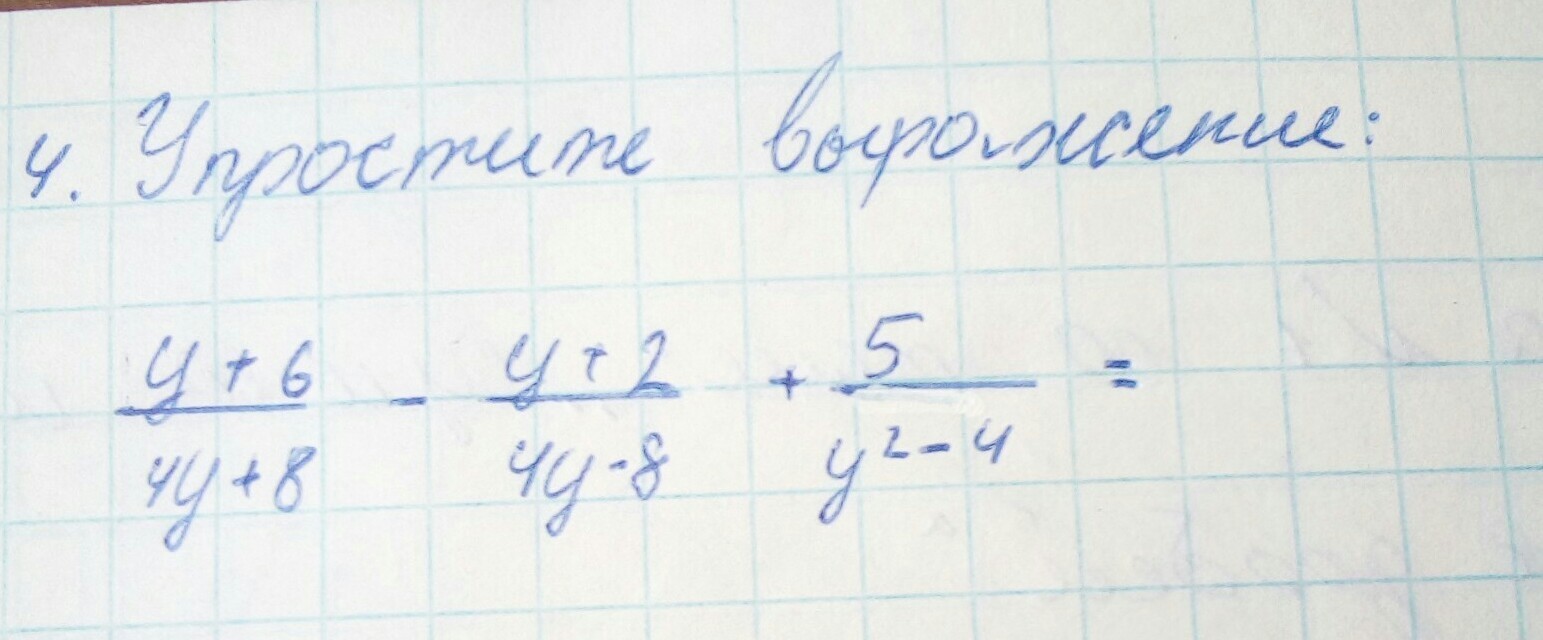 4. Упростите выражение:
y + 6 / 4y + 8 - y + 2 / 4y - 8 + 5 / y² - 4 =